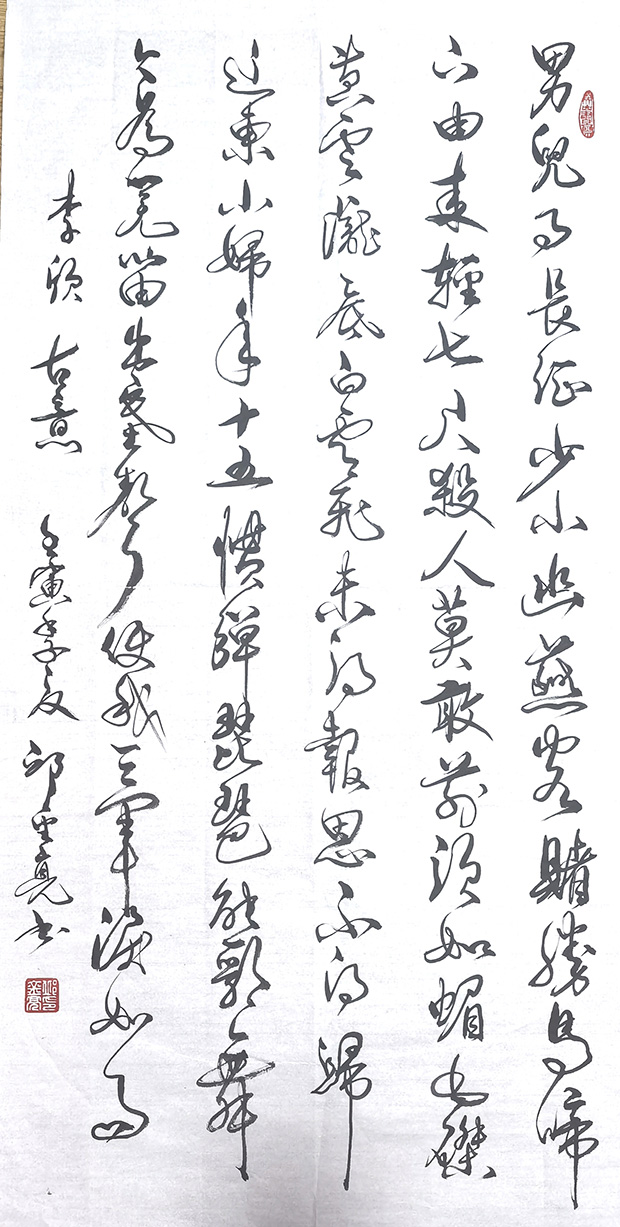 男兒事長征少小幽燕客賭勝馬啼
下由来輕七尺殺人莫敢前須如蝟毛磔
黄雲隴底白雲飛未得報恩不得歸
遼東小婦年十五慣彈琵琶能歌舞
今為羌笛出塞聲使我三軍淚如雨
李頎 古意 壬寅季夏 邱金亮书